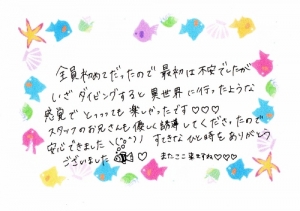 全員初めてだったので最初は不安でしたが
いざダイビングすると異世界に行ったような
感覚でとっっても楽しかったです♡♡♡
スタッフのお兄さんも優しく誘導してくださったので
安心できました\(^o^)/ すてきなひと時をありがとう
ございました♡
またここ来ますね♡♡♡